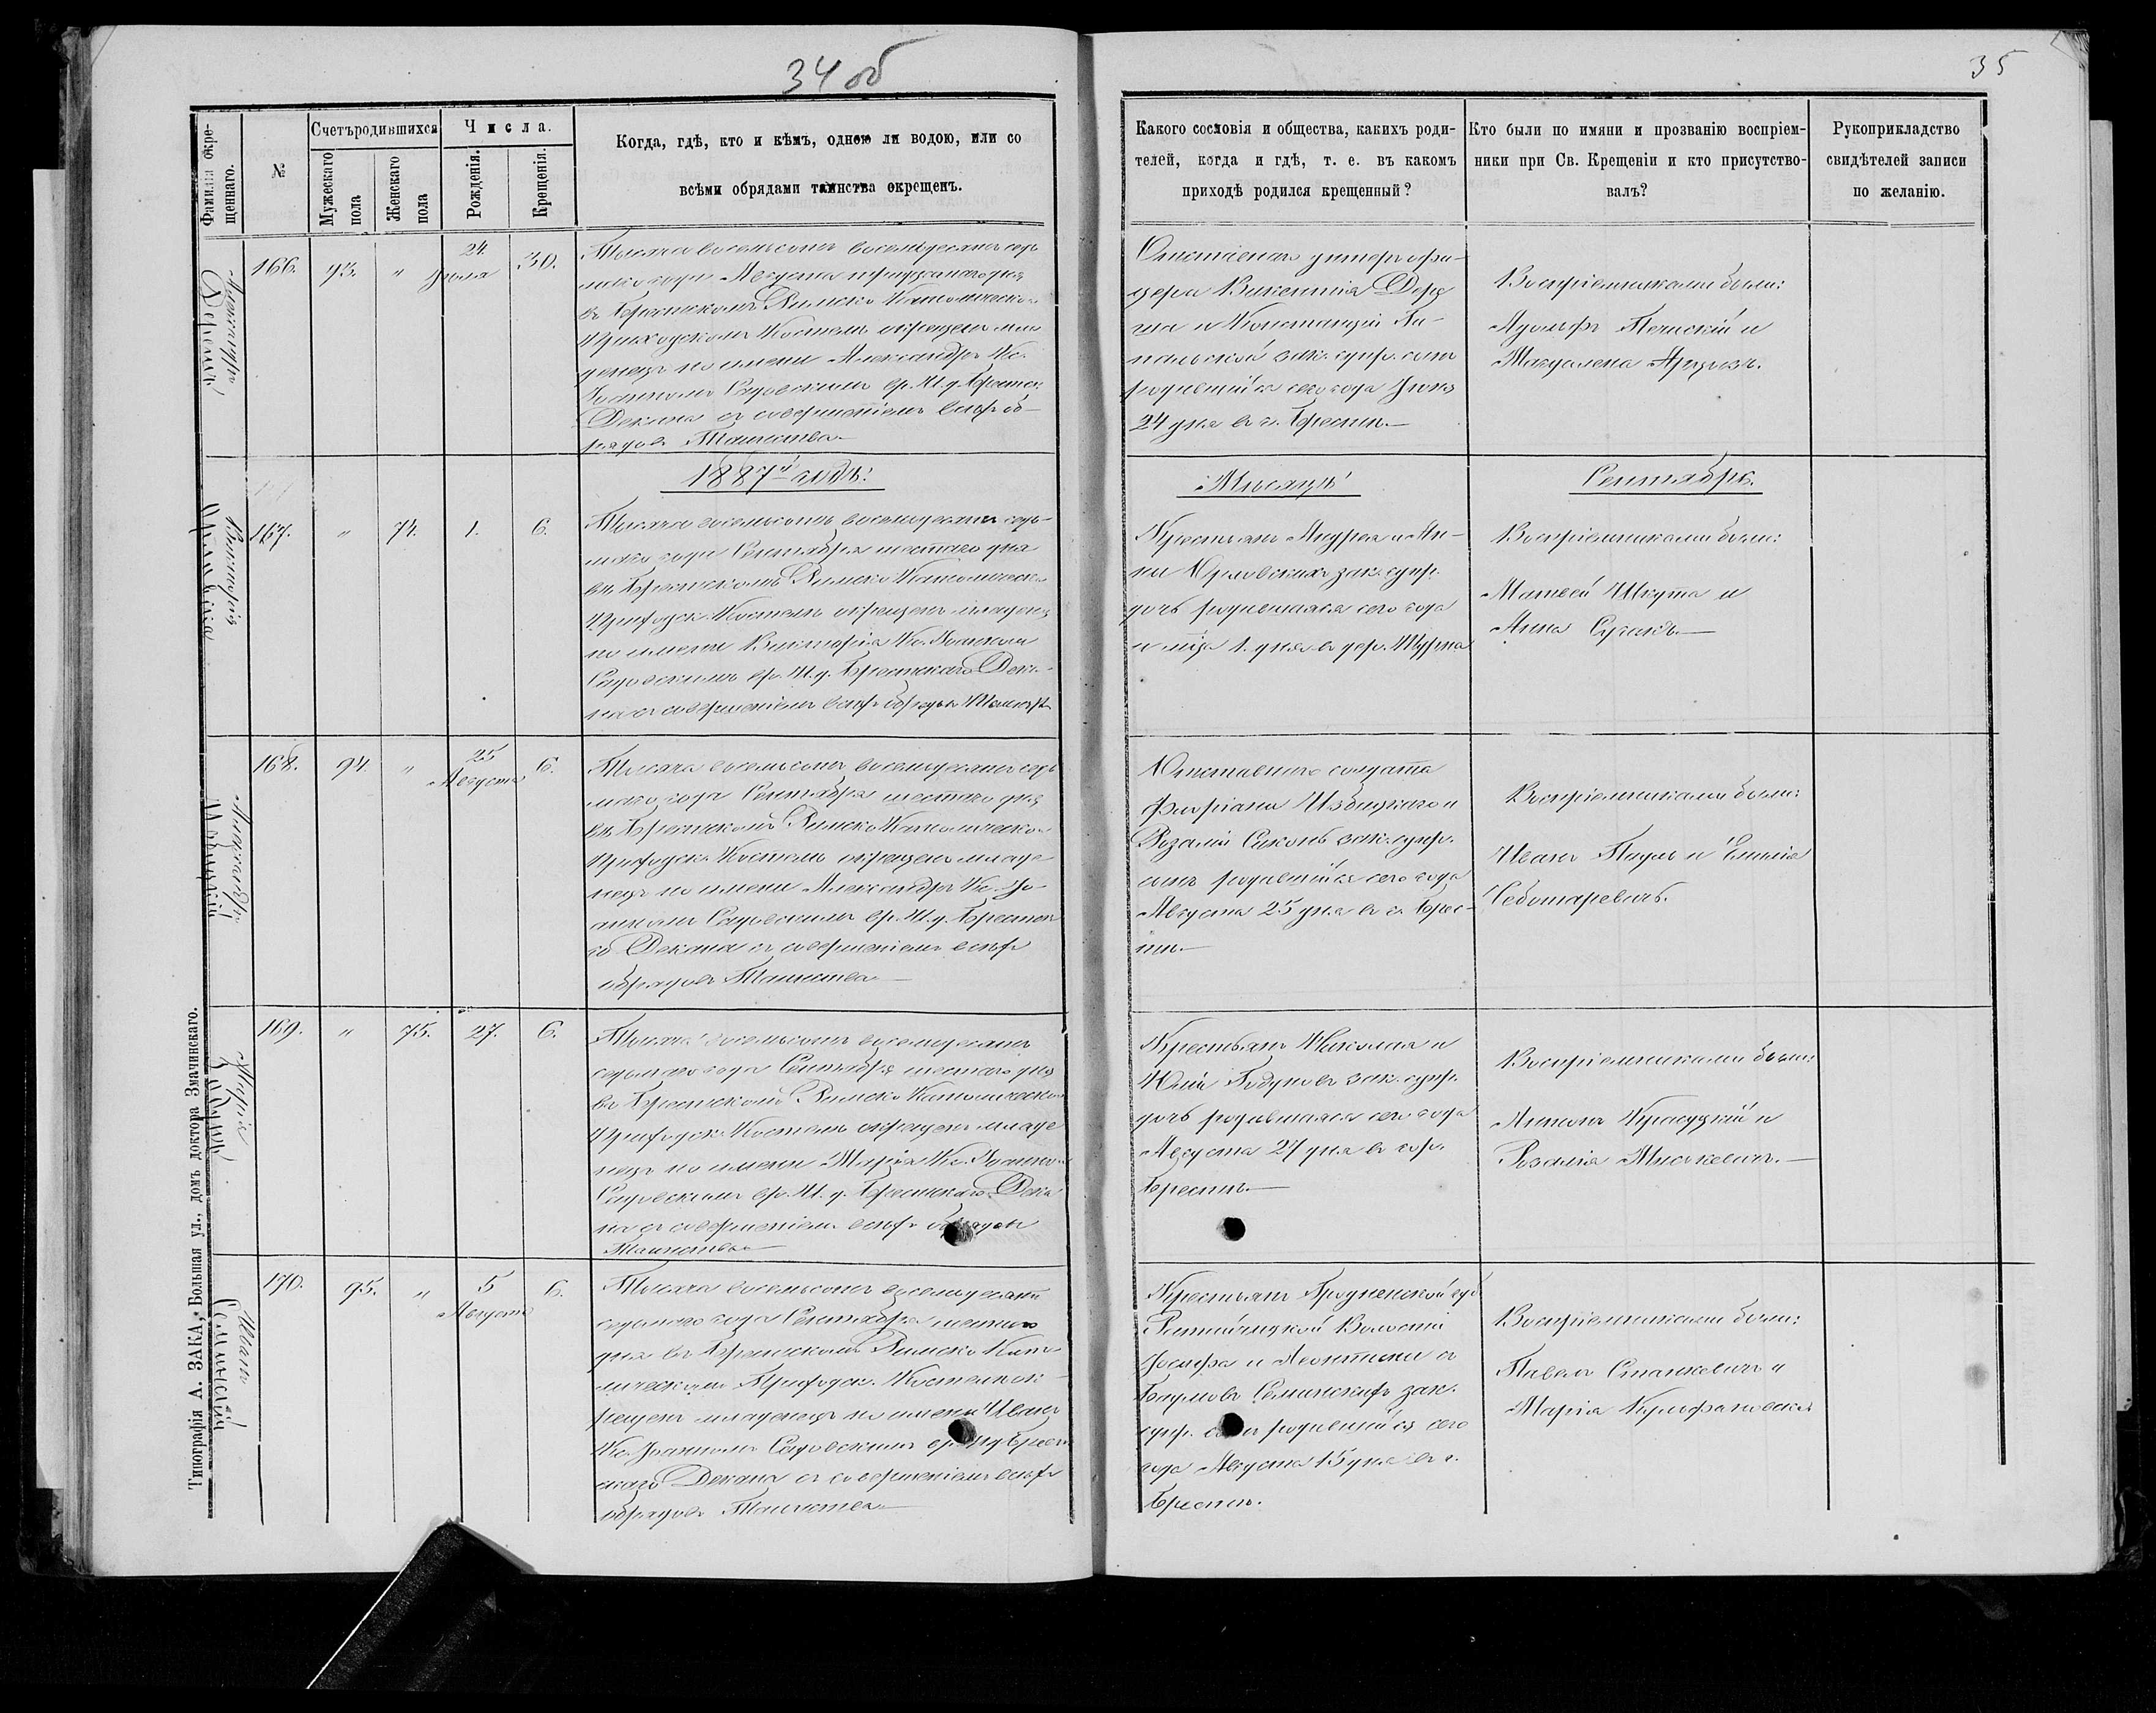 34 об
35
Фамилія окре-
щеннаго.
№
Счетъ родившихся
Мужескаго
пола
Женскаго
пола
Числа.
Рожденія.
Крещенія.
Когда, гдѣ, кто и кѣмъ, одною ли водою, или со
всѣми обрядами таинства окрещенъ.
Какого сословія и общества, какихъ роди-
телей, когда и гдѣ, т. е. въ какомъ
приходѣ родился крещенный?
Кто были по имяни и прозванію воспріем-
ники при Св. Крещеніи и кто присутство-
валъ?
Рукоприкладство
свидѣтелей записи
по желанію.
Александръ
166.
93.
"
24.
30.
Тысяча восемьсотъ восемьдесятъ седь
маго года Августа тридцатаго дня
въ Брестскомъ Римско Католическо
Приходскомъ Костелѣ окрещенъ мла
денецъ по имени Александръ Кс.
Іоанномъ Садовскимъ вр. И. д. Брестск
Декана съ совершеніемъ всѣхъ об-
рядовъ Таинства.
Отставнаго унтеръ офи-
цера Викентія
и Констанціи
зак. супр. сынъ
родившійся сего года
24 дня въ г. Брестѣ.
Воспріемниками были:
Адольфъ и
Магдалена
1887й годъ:
Мѣсяцъ
Сентябрь.
Викторія
Орловска
167.
"
74.
1.
6.
Тысяча восемьсотъ восемьдесятъ седь-
маго года Сентября шестаго дня
въ Брестскомъ Римско Католическо
Приходск. Костелѣ окрещенъ младенец
по имени Викторія Кс. Іоанномъ
Садовскимъ вр. И. д. Брестскаго Дека-
на съ совершеніемъ всѣхъ обрядовъ
Крестьянъ Андрея и Ан-
ны Орловскихъ зак. супр.
дочь родившаяся сего года
и м-ца 1. дня въ дер.
Воспріемниками были:
Матвей Шкута и
Анна
Александръ
168.
94.
"
25
Августа
6.
Тысяча восемьсотъ восемьдесятъ седь
маго года Сентября шестаго дня
въ Брестскомъ Римско Католическо
Приходск. Костелѣ окрещенъ младе
нецъ по имени Александръ Кс. Іо-
анномъ Садовскимъ вр. И. д. Брестск
го Декана съ совершеніемъ всѣхъ
обрядовъ Таинства
Отставнаго солдата
Флоріана Избицкаго и
Розаліи зак. супр.
сынъ родившійся сего года
Августа 25 дня въ г. Брес-
тѣ.
Воспріемниками были:
Иванъ и Емилія
Чеботаревичъ.
Марія
169.
"
75.
27.
6.
Тысяча восемьсотъ восемьдесятъ
седьмаго года Сентября шестаго дня
въ Брестскомъ Римско Католическо
Приходск. Костелѣ окрещенъ младе
нецъ по имени Марія Кс. Іоанно
Садовскимъ вр. И. д. Брестскаго Дека
на съ совершеніемъ всѣхъ обрядовъ
Таинства
Крестьянъ Николая и
Юліи зак. супр.
дочь родившаяся сего года
Августа 27 дня въ гор.
Брестѣ.
Воспріемниками были:
Антонъ и
Розалія
Иванъ
170.
95.
"
5
Августа
6.
Тысяча восемьсотъ восемьдесятъ
седьмаго года Сентября шестаго
дня въ Брестскомъ Римско Като-
лическомъ Приходск. Костелѣ ок-
рещенъ младенецъ по имени Иванъ
Кс. Іоанномъ Садовскимъ вр. И д Брест
скаго Декана съ совершеніемъ всѣхъ
обрядовъ Таинства
Крестьянъ Гродненской губ
Волости
Іосифа и Леонтины съ
зак.
супр. сынъ родившійся сего
года Августа 15 дня въ г.
Брестѣ.
Воспріемниками были:
Павелъ Станкевичъ и
Марія
Типографія А. ЗАКА, Большая ул., домъ доктора Змачинскаго.